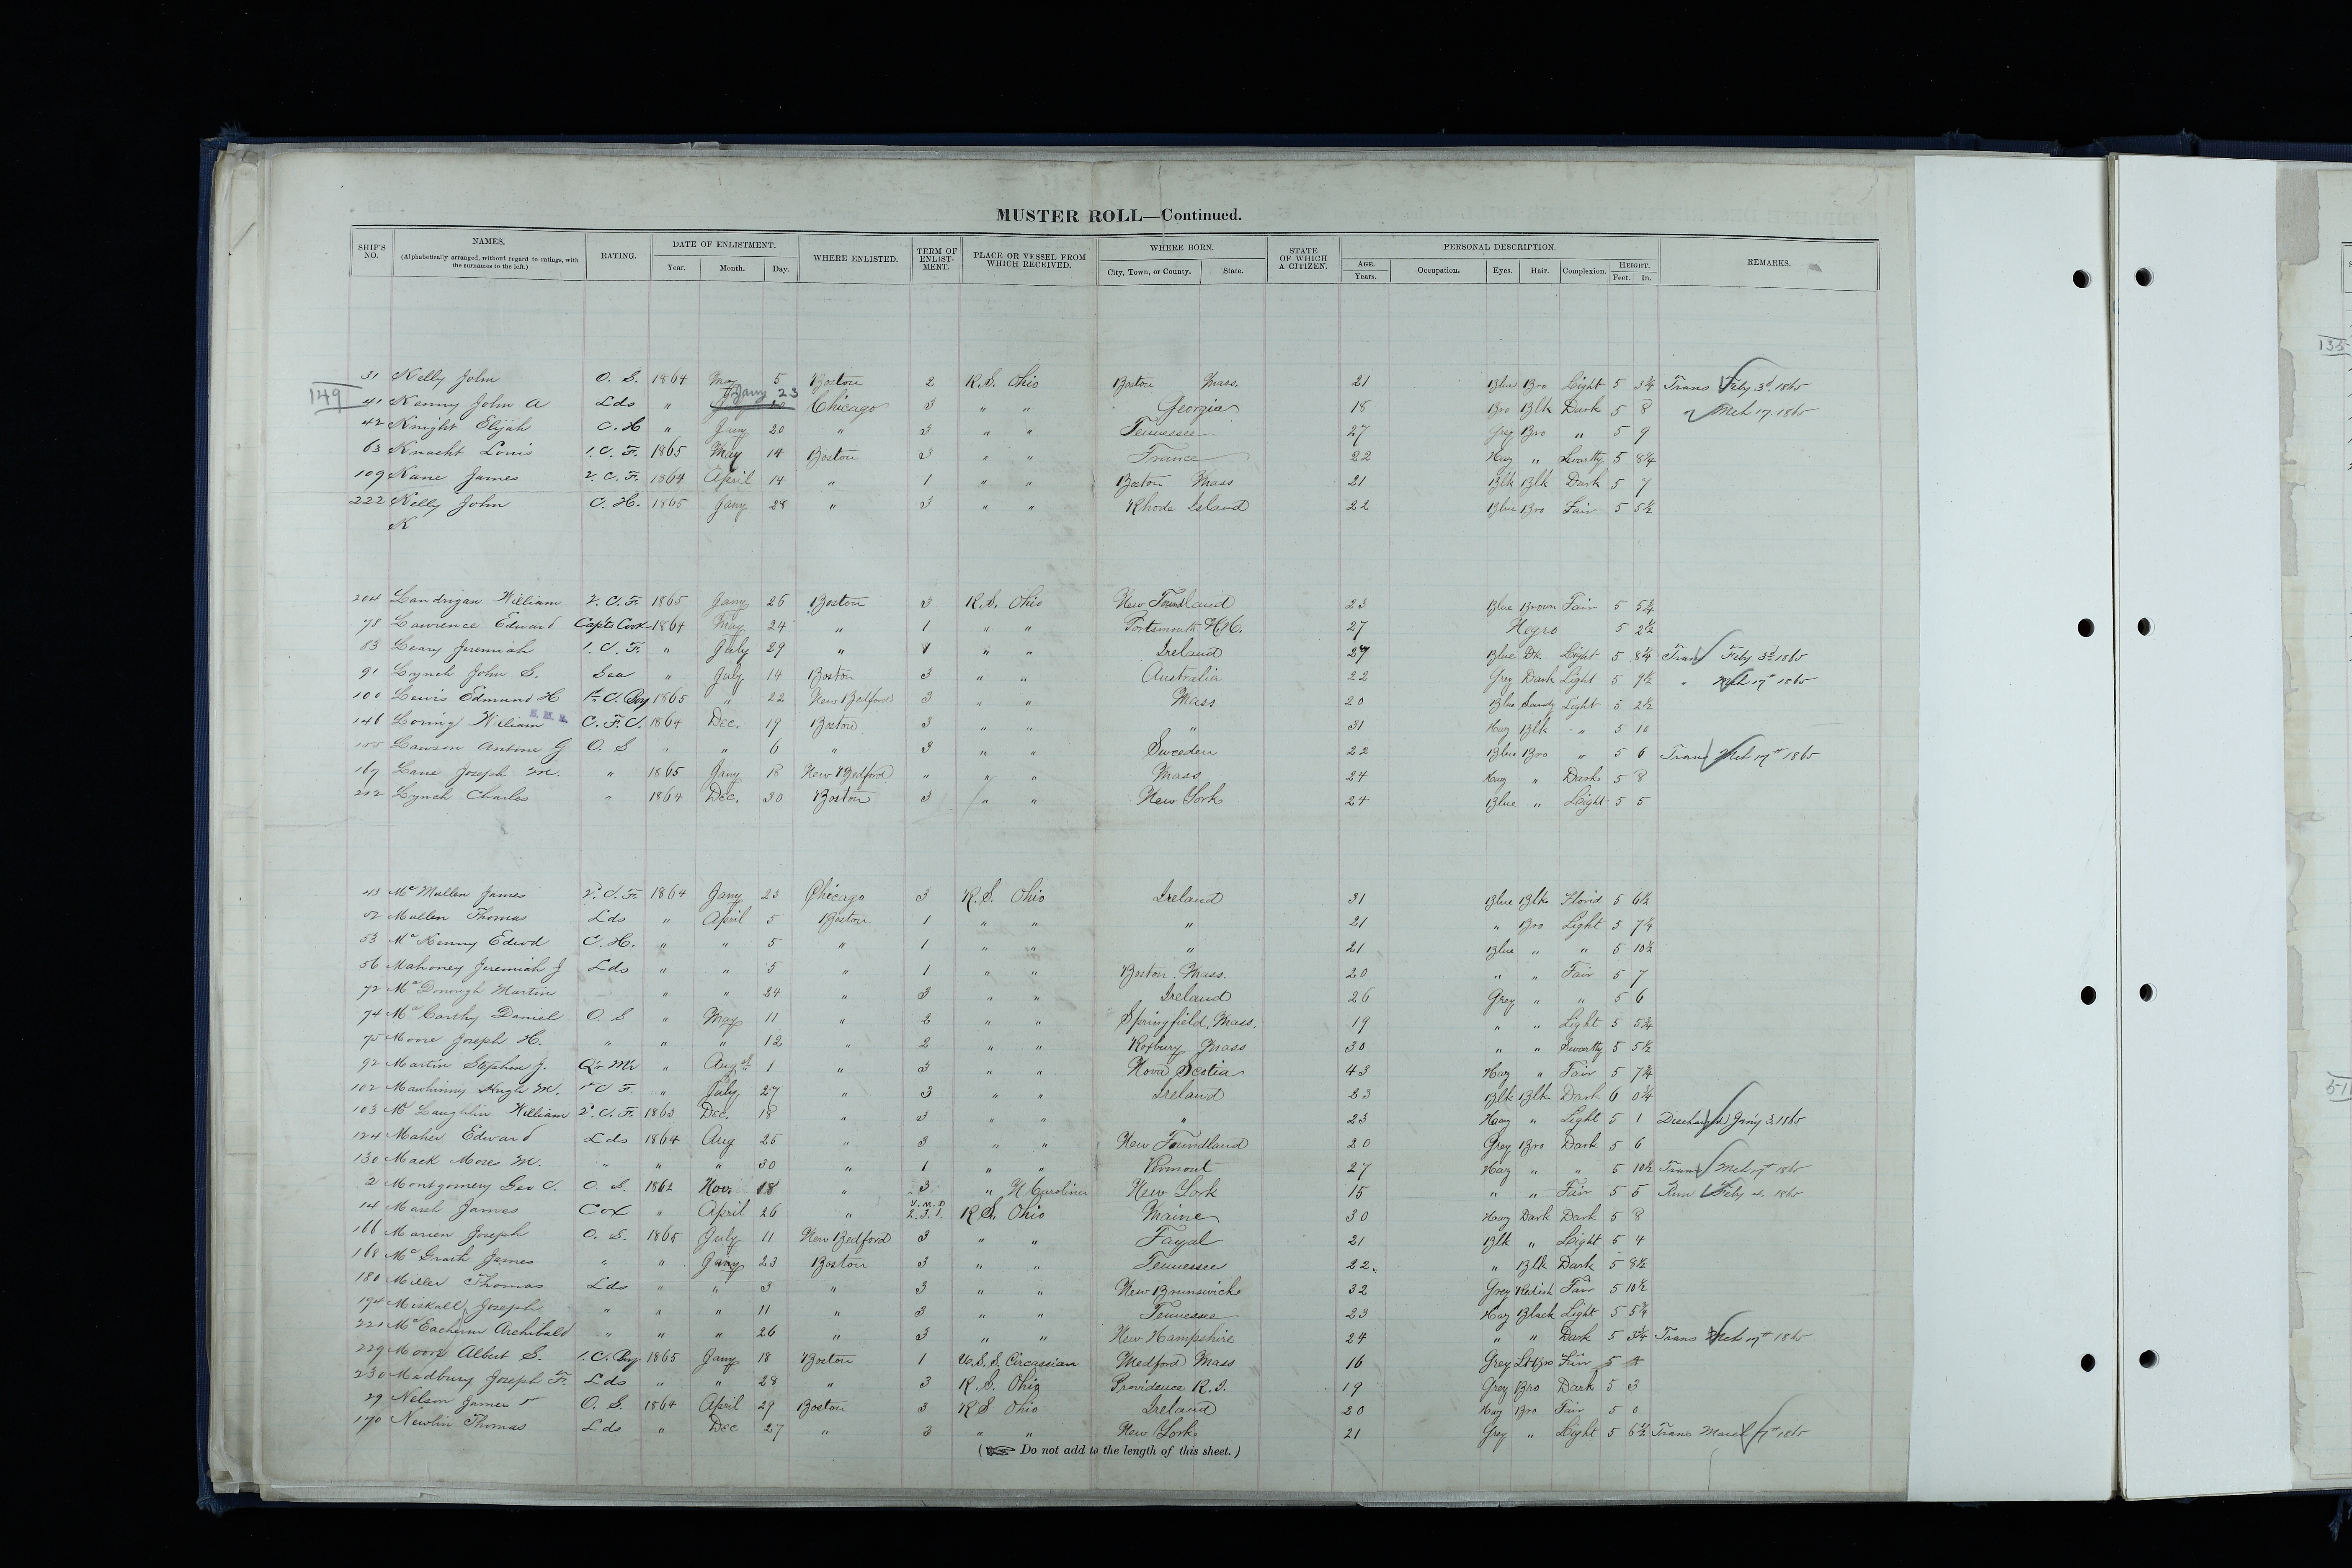 MUSTER ROLL—Continued.
SHIP'S NO. NAMES. (Alphabetically arranged, without regard to ratings, with the surnames to the left.) RATING. DATE OF ENLISTMENT. Year. Month. Day. WHERE ENLISTED. TERM OF ENLIST- MENT. PLACE OR VESSEL FROM WHICH RECEIVED. WHERE BORN. City, Town, or County. State. STATE OF WHICH A CITIZEN. PERSONAL DESCRIPTION. AGE. Years. Occupation. Eyes. Hair. Complexion. HEIGHT. Feet. In. REMARKS.
31 Kelly John O. S. 1864 May 5 Boston 2 R.S. Ohio Boston Mass. 21 Blue Bro Light 5 3¼ Trans Feby 3d 1865
Jany 23
149 41 Kenny John A Lds " Chicago 3 " " Georgia 18 Bro Blk Dark 5 8 " Mch 17. 1865
42 Knight Elijah C. H " Jany 20 " 3 " " Tennessee 27 Grey Bro " 5 9
63 Knacht Louis 1. C. F. 1865 May 14 Boston 3 " " France 22 Haz " Swartty 5 8¼
109 Kane James 2. C. F. 1864 April 14 " 1 " " Boston Mass 21 Blk Blk Dark 5 7
222 Kelly John C. H. 1865 Jany 28 " 3 " " Rhode Island 22 Blue Bro Fair 5 5½
K
204 Landrigan William 2. C. F. 1865 Jany 26 Boston 3 R.S. Ohio New Foundland 23 Blue Brown Fair 5 5¾
78 Lawrence Edward Capts Cook 1864 May 24 " 1 " " Portsmouth N.H. 27 Negro 5 2½
83 Leary Jeremiah 1. C. F. " July 29 " 1 " " Ireland 27 Blue Dk Light 5 8¼ Trans Feby 3d 1865
91 Lynch John S. Sea " July 14 Boston 3 " " Australia 22 Grey Dark Light 5 9½ " Mch 17th 1865
100 Lewis Edmund H 1st C. Boy 1865 " 22 New Bedford 3 " " Mass 20 Blue Sandy Light 5 2½
146 Loring William C. F. C. 1864 Dec. 19 Boston 3 " " " 31 Haz Blk " 5 10
155 Lawson Antone G O. S " " 6 " 3 " " Sweeden 22 Blue Bro " 5 6 Trans Mch 17th 1865
169 Lane Joseph M. " 1865 Jany 18 New Bedford " " " Mass 24 Haz " Dark 5 8
212 Lynch Charles " 1864 Dec. 30 Boston 3 " " New York 24 Blue " Light 5 5
43 Mc Mullen James 2d. C. F. 1864 Jany 23 Chicago 3 R.S. Ohio Ireland 31 Blue Blk Florid 5 6½
52 Mullen Thomas Lds " April 5 Boston 1 " " " 21 " Bro Light 5 7¼
53 Mc Kenny Edwd C. H. " " 5 " 1 " " " 21 Blue " " 5 10½
56 Mahoney Jeremiah J Lds " " 5 " 1 " " Boston Mass. 20 " " Fair 5 7
72 Mc Donough Martin " " 24 " 3 " " Ireland 26 Grey " " 5 6
74 Mc Carthy Daniel O. S " May 11 " 2 " " Springfield, Mass. 19 " " Light 5 5¾
75 Moore Joseph H. " " " 12 " 2 " " Roxbury Mass 30 " " Swartty 5 5½
92 Martin Stephen J. Qr Mr " Augst 1 " 3 " " Nova Scotia 43 Haz " Fair 5 7¾
102 Mawhinny Hugh M. 1st C F. " July 27 " 3 " " Ireland 23 Blk Blk Dark 6 0¾
103 Mc Laughlin William 2. C. F. 1863 Dec. 18 " 3 " " " 23 Haz " Light 5 1 Discharged Jany 3. 1865
124 Maher Edward Lds 1864 Aug 25 " 3 " " New Foundland 20 Grey Bro Dark 5 6
130 Mack Moses M. " " " 30 " 1 " " Vermont 27 Haz " " 5 10½ Trans Mch 17th 1865
2 Montgomery Geo C. O. S. 1862 Nov. 18 " 3 " N Carolina New York 15 " " Fair 5 5 Run Feby 4. 1865
Y. M. D
14 Marsh James Cox " April 26 " 2. 3. 1. R S. Ohio Maine 30 Haz Dark Dark 5 8
166 Marien Joseph O. S. 1865 July 11 New Bedford 3 " " Fayal 21 Blk " Light 5 4
168 Mc Grath James " " Jany 23 Boston 3 " " Tennessee 22. " Blk Dark 5 8½
180 Miller Thomas Lds " " 3 " 3 " " New Brunswick 32 Grey Redish Fair 5 10½
194 Miskall, Joseph " " " 11 " 3 " " Tennessee 23 Haz Black Light 5 5¾
221 Mc Eachern Archibald " " " 26 " 3 " " New Hampshire 24 " " Dark 5 3¾ Trans Mch 17th 1865
229 Moore Albert S. 1. C. Boy 1865 Jany 18 Boston 1 U.S.S. Circassian Medford Mass 16 Grey Lt Bro Fair 5
230 Medbury Joseph F. Lds " " 28 " 3 R.S. Ohio Providence R.I. 19 Grey Bro Dark 5 3
29 Nelson James O. S. 1864 April 29 Boston 3 R S Ohio Ireland 20 Haz Bro Fair 5 0
170 Newlin Thomas Lds " Dec 27 " 3 " " New York 21 Grey " Light 5 6½ Trans March 17th 1865
( Do not add to the length of this sheet. )